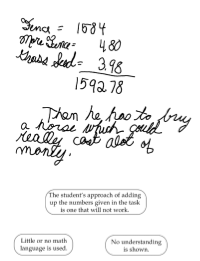 Fence = 1584
More Fence = 4.80
Grass Seed = 3.98
159278
Then he has to buy
a horse which could
really cost alot of
money.
The student's approach of adding
up the numbers given in the task
is one that will not work.
Little or no math
language is used.
No understanding
is shown.